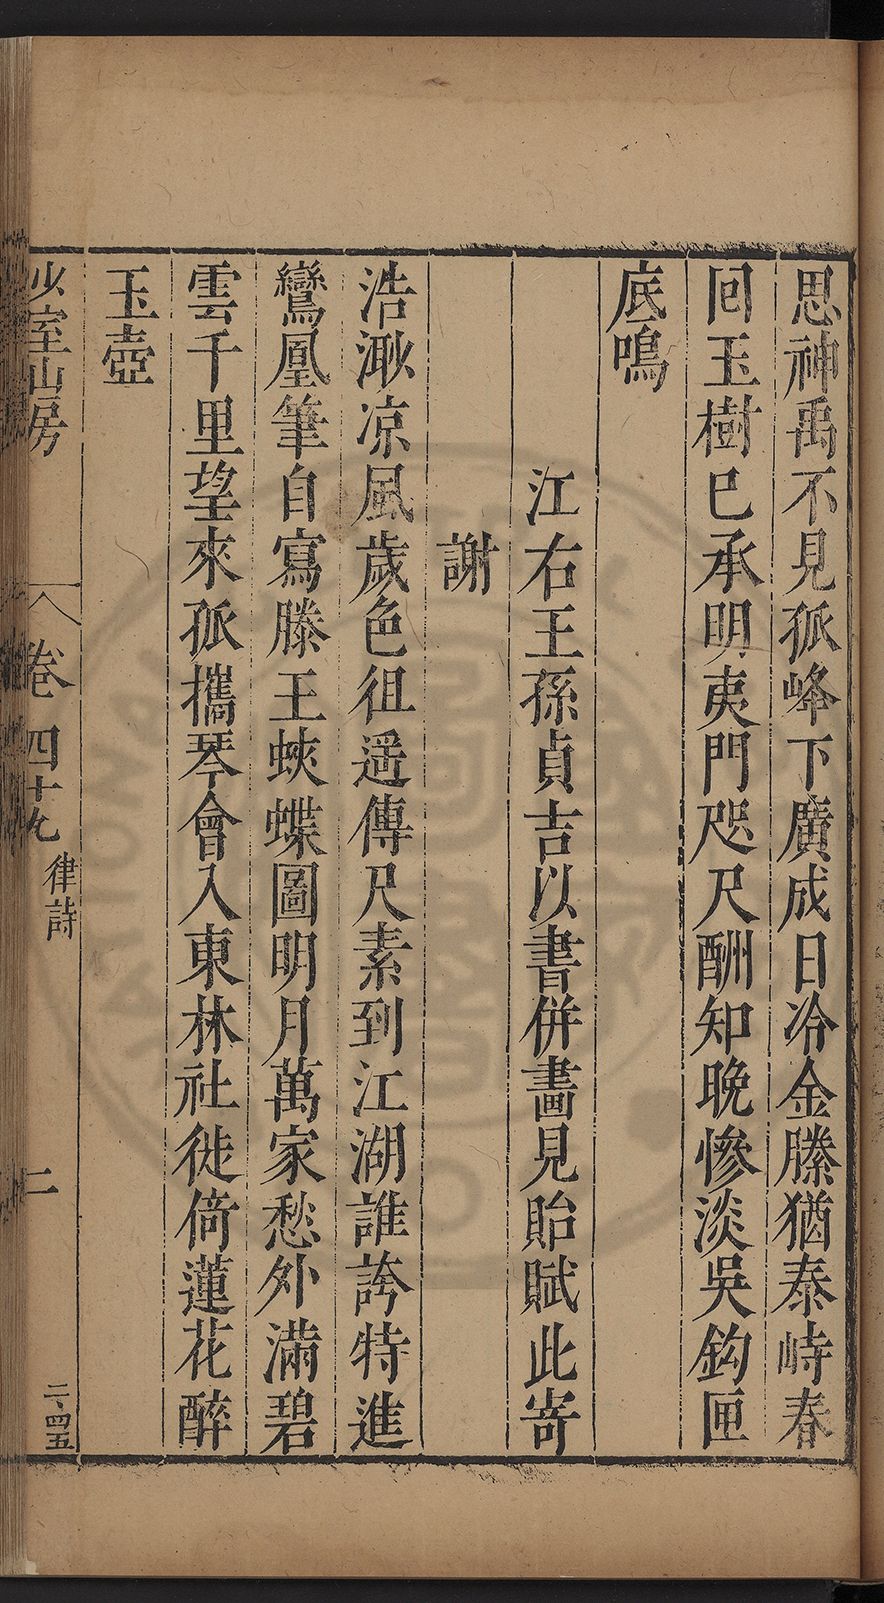 思神禹不見孤峰下廣成日冷金縢猶泰峙春
回玉樹巳承明夷門咫尺酬知晚慘淡吳鈎匣
底鳴
江右王孫貞吉以書併畵見貽賦此寄
謝
浩渺凉風歲色徂遥傳尺素到江湖誰誇特進
鸞凰筆自寫滕王蛺蝶圖明月萬家愁外滿碧
雲千里望來孤攜琴會入東林社徙倚蓮花醉
玉壺
少室山房
卷四十九
律詩
二
二、四五